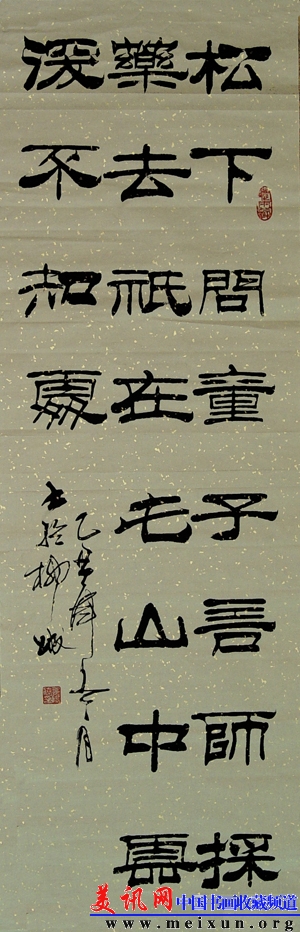 松下問童子言師採
藥去祇在此山中雲
深不知處
乙丑
書於柳城
美讯网
中国书画收藏频道
www.meixun.org